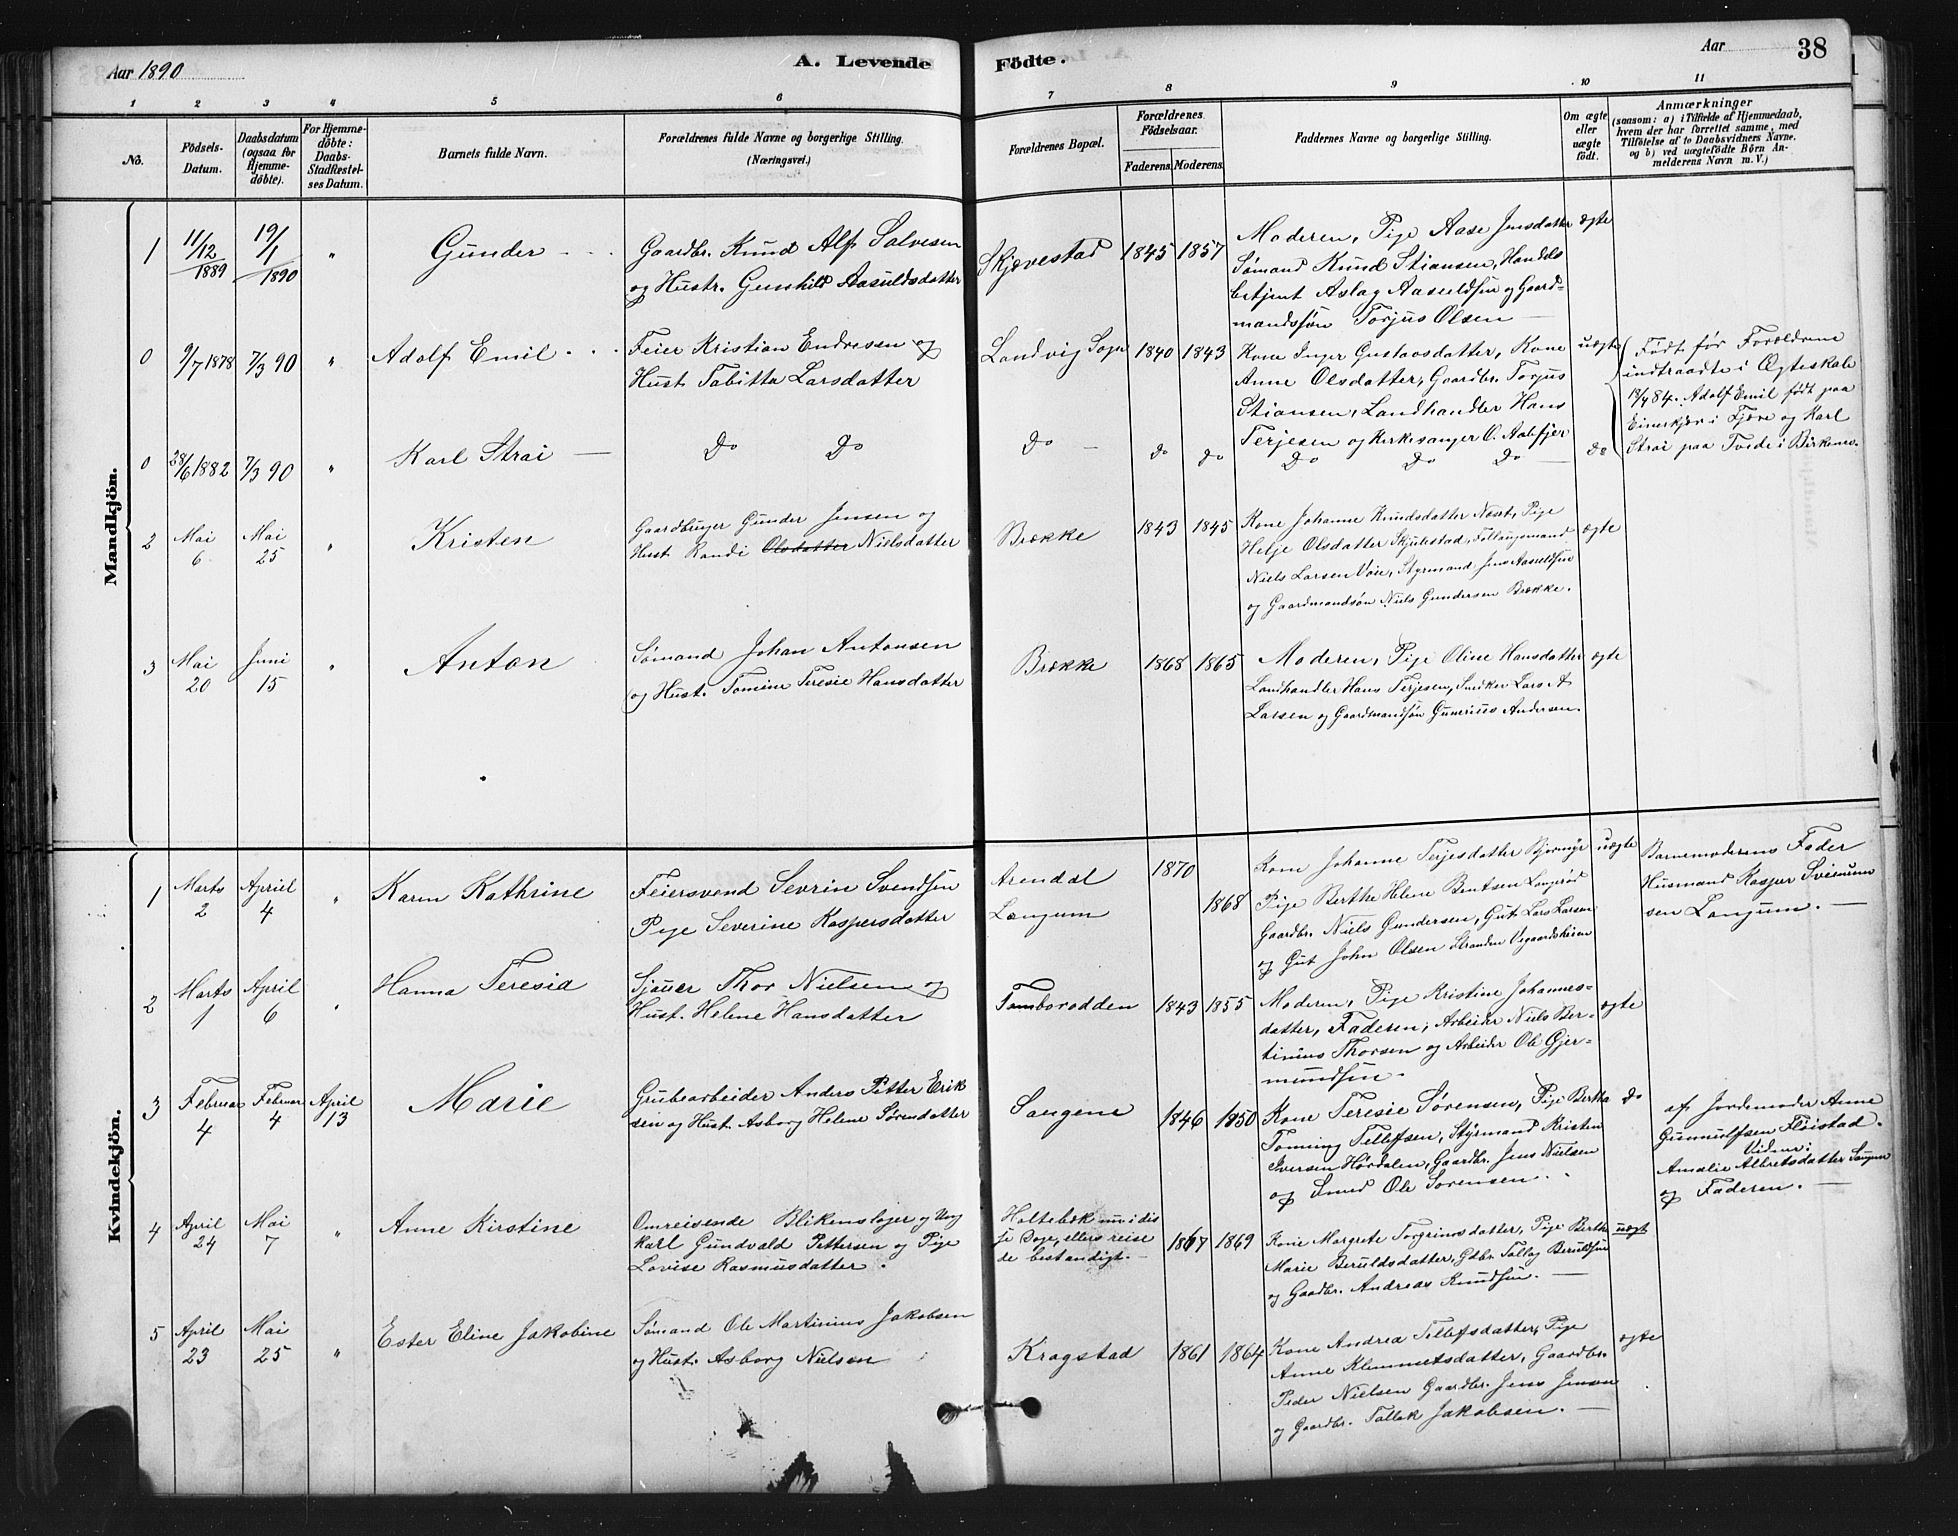 Aar 1890
A. Levende
Födte.
Aar
38
1 2 3 4 5 6 7 8 9 10 11
No.
Födsels-
Datum.
Daabsdatum
(ogsaa for
Hjemme-
döbte).
For Hjemme-
döbte:
Daabs-
Stadfæstel-
ses Datum.
Barnets fulde Navn.
Forældrenes fulde Navne og borgerlige Stilling.
(Næringsvei.)
Forældrenes Bopæl.
Forældrenes
Födselsaar.
Faderens. Moderens.
Faddernes Navne og borgerlige Stilling.
Om ægte
eller
uægte
födt.
Anmærkninger
(saasom: a) i Tilfælde af Hjemmedaab,
hvem der har forrettet samme, med
Tilföielse af to Daabsvidners Navne.
og b) ved uægtefödte Börn An-
melderens Navn m. V.)
Mandkjön.
1 11/12 1889 19/1 1890 " Gunder
Gaardbr. Knud Alf Salvesen
og Hustr. Gunhild Aasuldsdatter
Skjævestad 1845 1857
Moderen, Pige Aase Jensdatter
Sømand Knud Stiansen, Handels
betjent Aslag Aasuldsen og Gaard-
mandssøn Torjus Olsen
ægte
0 9/7 1878 7/3 90 " Adolf Emil
Feier Kristian Endresen og
Hust. Tabitta Larsdatter
Landvig Sogn 1840 1843
Kone Inger Gustavsdatter, Kone
Anne Olsdatter, Gaardbr. Torjus
Stiansen, Landhandler Hans
Terjesen og Kirkesanger O. Aabfjer
uægte
Født før Forældrene
indtraadte i Ægteskab
18/4 84. Adolf Emil født paa
i Fjære og Karl
Strai paa Tvede i Birkenes.
0 28/6 1882 7/3 90 " Karl Strai
Do Do
Do Do Do
Do Do Do
Do
2 Mai 6 Mai 25 " Kristen
Gaardbruger Gunder Jensen og
Hust. Randi Olsdatter Nielsdatter
Brække 1843 1845
Kone Johanne Knudsdatter Næst, Pige
Helje Olsdatter Skjulestad, Fattigsmand
Niels Larsen Voie, Styrmand Jens Aasuldsen
og Gaardmandsøn Niels Gundersen Brække.
ægte
3 Mai 20 Juni 15 " Anton
Sømand Johan Antonsen
og Hust. Tomine Teresie Hansdatter
Brække 1868 1865
Moderen, Pige Oline Hansdatter
Landhandler Hans Terjesen, Snedker Lars A
Larsen og Gaardmandsøn Gunerius Andersen.
ægte
Kvindekjön.
1 Marts 2 Apriel 4 " Karen Kathrine
Feiersvend Sevrin Svendsen
Pige Severine Kaspersdatter
Arendal 1870
Langum 1868
Kone Johanne Terjesdatter Bjørmyr
Pige Berthe Helene Bentsen Langrød
Gaardbr. Niels Gundersen, Gut Lars Larsen
og Gut John Olsen Stranden Vegaardsheien
uægte
Barnemoderens Fader
Husmand Kasper
sen Langum.
2 Marts 1 April 6 " Hanna Teresia
Sjauer Thor Nielsen og
Hust. Helene Hansdatter
Tomborodden 1843 1855
Moderen, Pige Kristine Johannes-
datter, Faderen, Arbeider Niels Ber-
tinius Thorsen og Arbeider Ole Gjer-
mundsen.
ægte
3 Februar 4 Februar 4 April 13 Marie
Grubearbeider Anders Petter Erik
sen og Hust. Asborg Helene Sørensdatter
Sangene 1846 1850
Kone Teresie Sørensen, Pige Bertha
Tomine Tellefsen, Styrmand Kristen
Iversen Hørdalen, Gaardbr. Jens Nielsen
og Smed Ole Sorensen.
Do
af Jordemoder Anne
Gunnulfsen Fløistad.
Vidner:
Amalie Albretsdatter Sangene
og Faderen.
4 April 24 Mai 7 " Anne Kirstine
Omreisende Blikenslager og Ung
karl Gundvald Pettersen og Pige
Lovise Rasmusdatter.
Holtebæk nu i dis
se Dage, ellers reise
de bestandigt.
1867 1869
Kone Margrete Torgrimsdatter, Pige Berthe
Marie Beruldsdatter, Gdbr. Tallag Beruldsen
og Gaardbr. Andreas Knudsen.
uægt
5 April 23 Mai 25 " Ester Eline Jakobine
Sømand Ole Martinius Jakobsen
og Hust. Asborg Nielsen
Kragstad 1861 1864
Kone Andrea Tellefsdatter, Pige
Anne Klemmetsdatter, Gaardbr.
Peder Nielsen Gaardbr. Jens Jensen
og Gaardbr. Tallak Jakobsen.
ægte